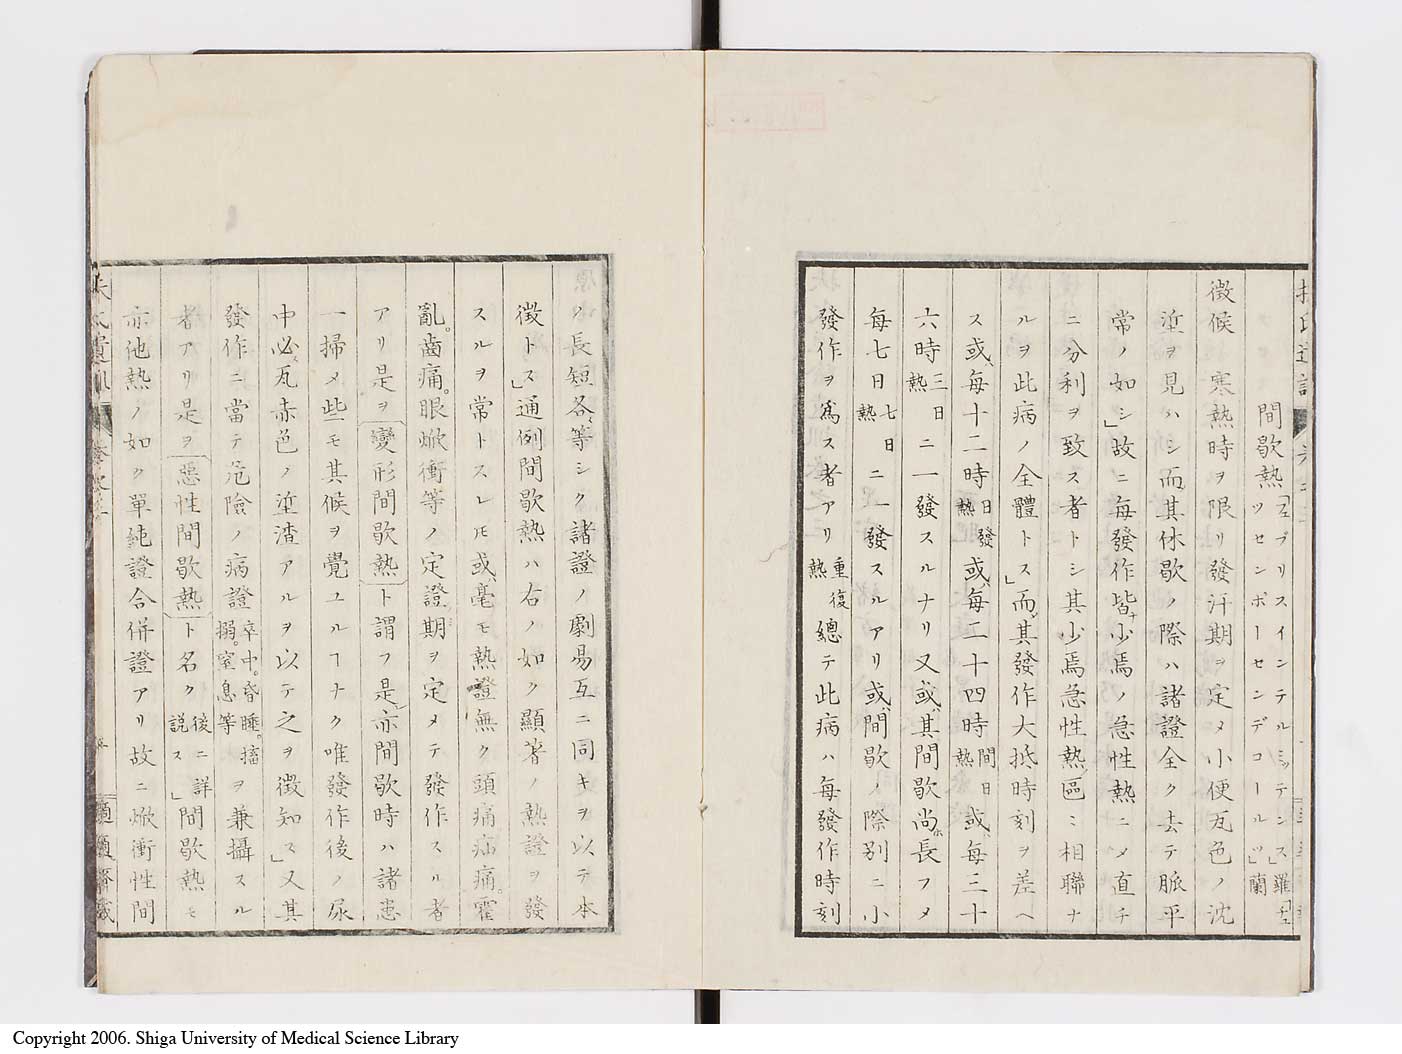 間歇熱「フェブリスインテルミッテンス」羅「チュッセンポーセンデコールツ」蘭
徴候寒熱時ヲ限リ發汗期ヲ定メ小便瓦色ノ沈
埿ヲ見ハシ而其休歇ノ際ハ諸證全ク去テ脈平
常ノ如シ」故ニ毎發作皆少焉ノ急性熱ニメ直チ
ニ分利ヲ致ス者トシ其少焉急性熱區〻相聯ナ
ルヲ此病ノ全體トス」而其發作大抵時刻ヲ差ヘ
ス或毎十二時日發熱或毎二十四時間日熱或毎三十
六時三日熱ニ一發スルナリ又或其間歇尚長フメ
毎七日七日熱ニ一發スルアリ或間歇ノ際別ニ小
發作ヲ爲ス者アリ重復熱總テ此病ハ毎發作時刻
ノ長短各等シク諸證ノ劇易互ニ同キヲ以テ本
徴トス」通例間歇熱ハ右ノ如ク顯著ノ熱證ヲ發
スルヲ常トスレㄿ或毫モ熱證無ク頭痛疝痛。霍
亂。齒痛。眼焮衝等ノ定證期ヲ定メテ發作スル者
アリ是ヲ變形間歇熱ト謂フ是亦間歇時ハ諸患
一掃メ些モ其候ヲ覺ユルヿナク唯發作後ノ尿
中必瓦赤色ノ埿渣アルヲ以テ之ヲ徴知ス」又其
發作ニ當テ危險ノ病證卒中。昏睡。搐搦。窒息等ヲ兼攝スル
者アリ是ヲ惡性間歇熱ト名ク後ニ詳説ス」間歇熱モ
亦他熱ノ如ク單純證合併證アリ故ニ焮衝性間